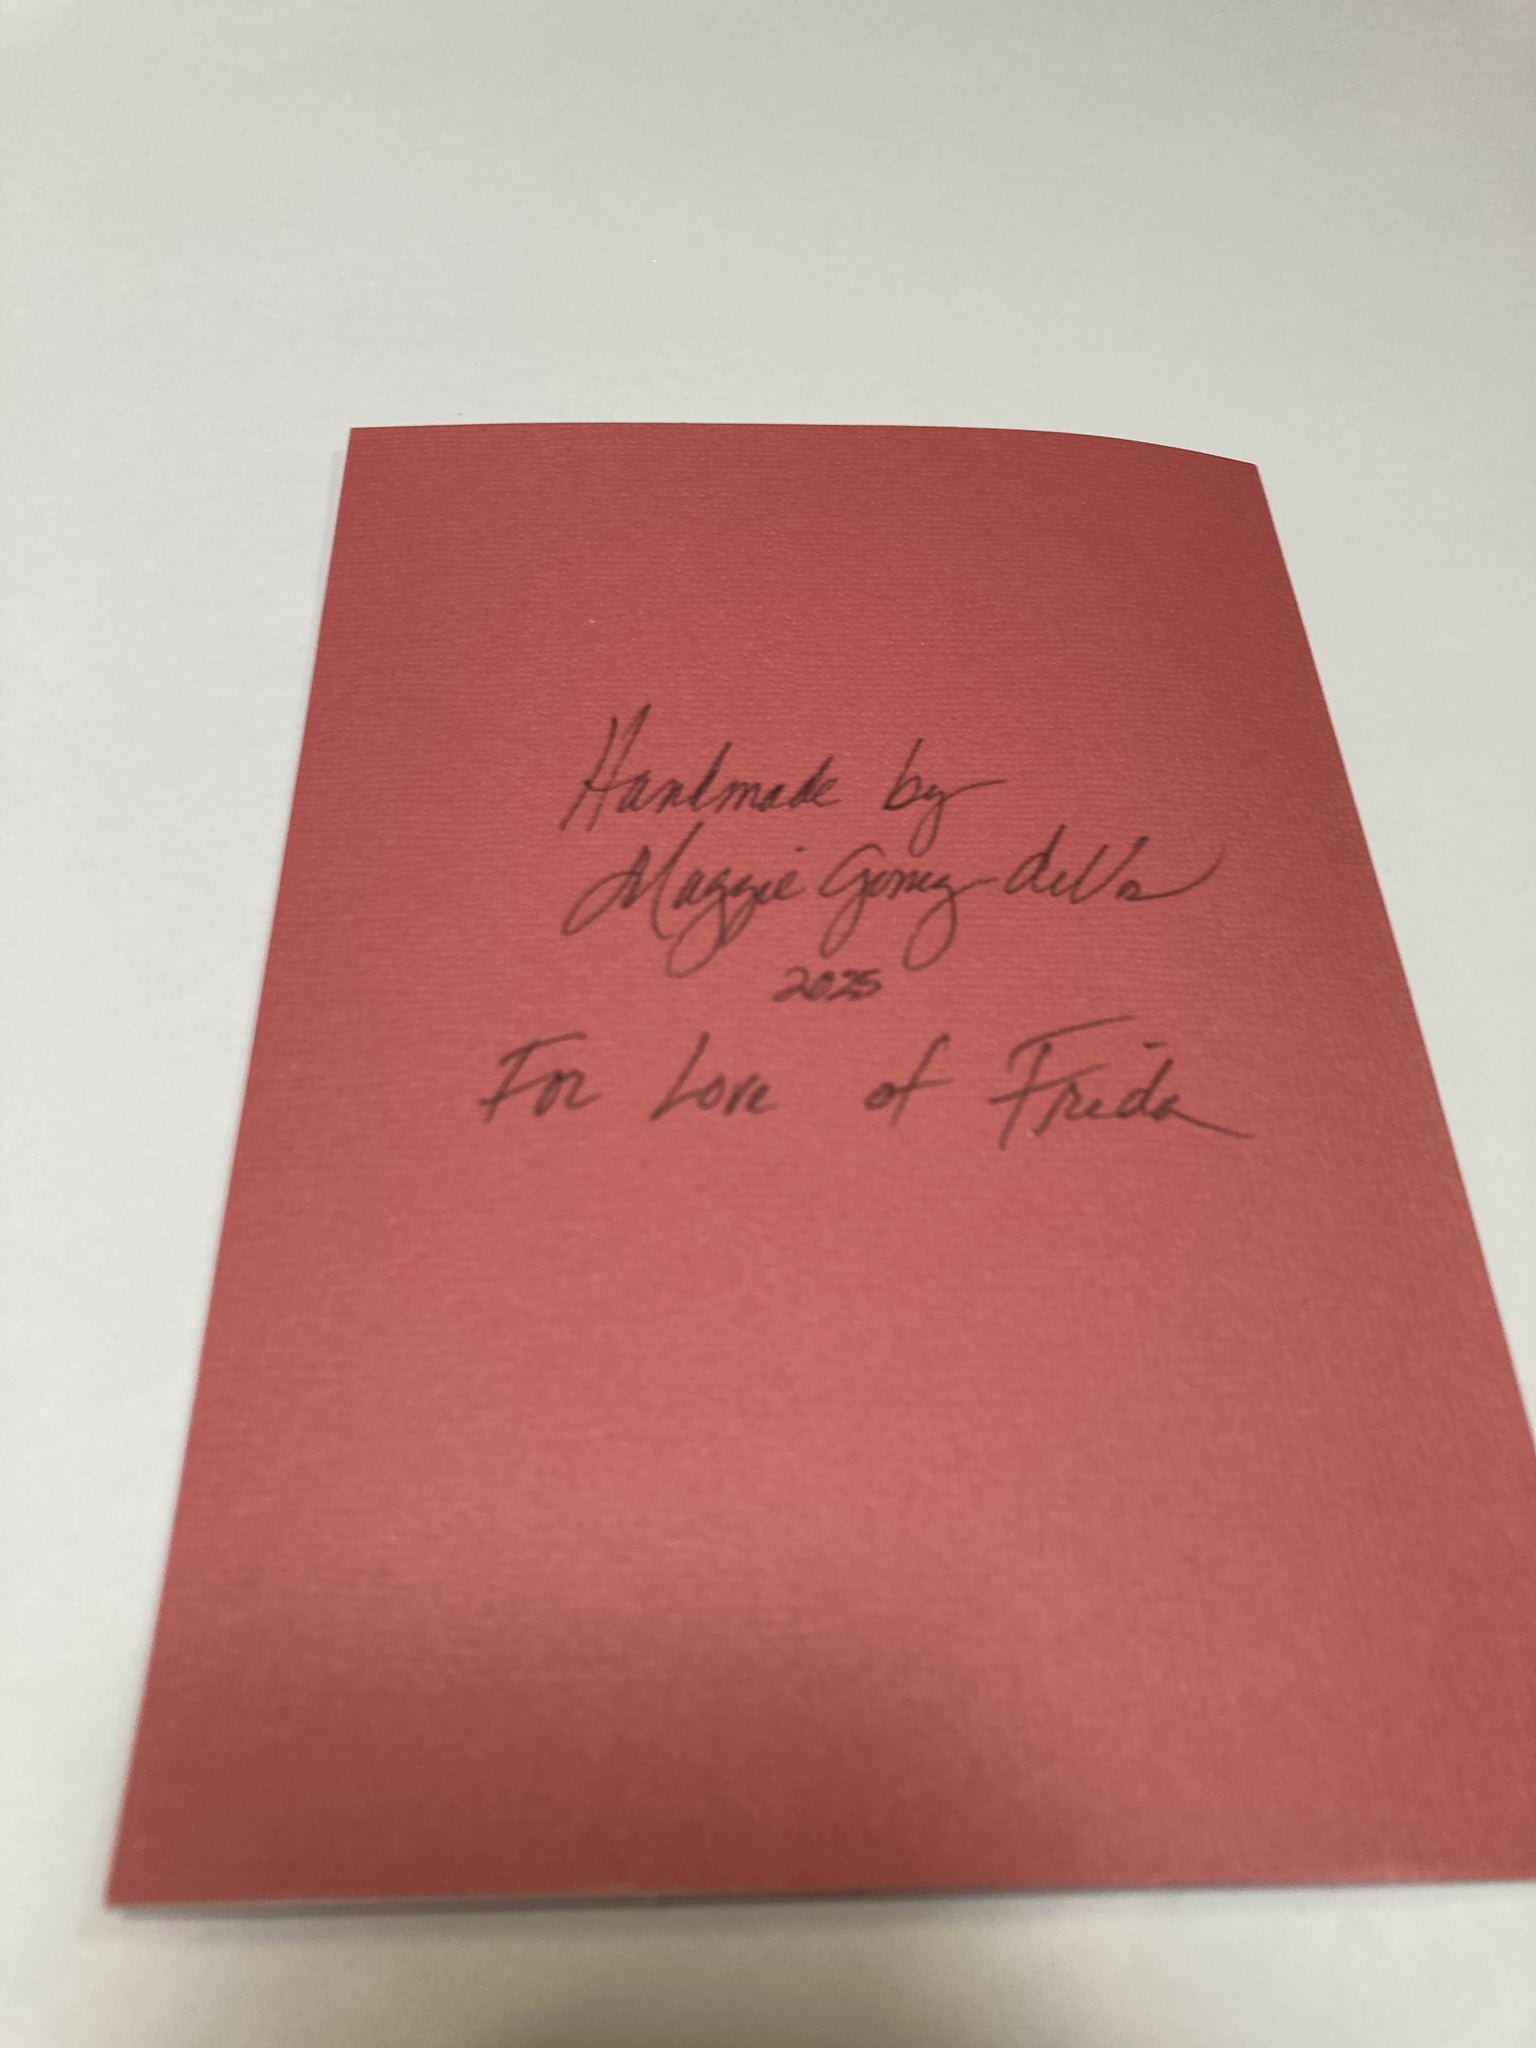 Handmade by
Maggie Gomez-
2025
For Love of Frida